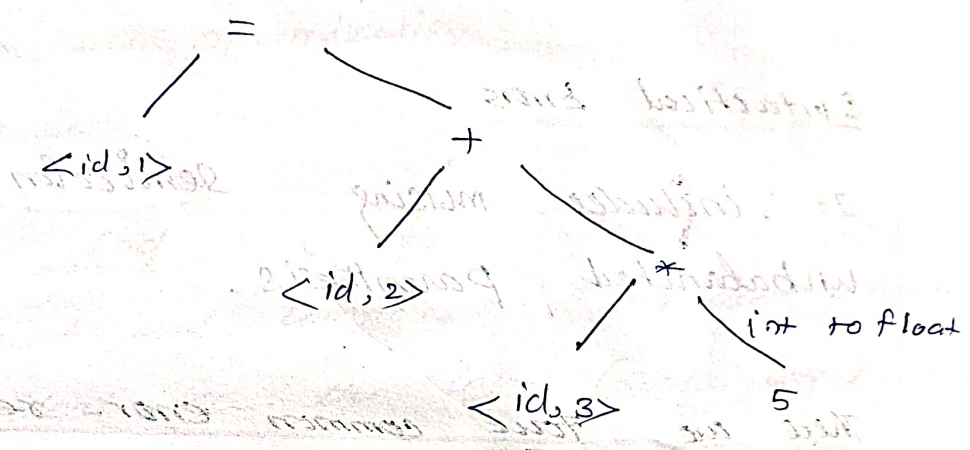 =
+
<id,1>
*
<id,2>
int to float
<id,3>
5